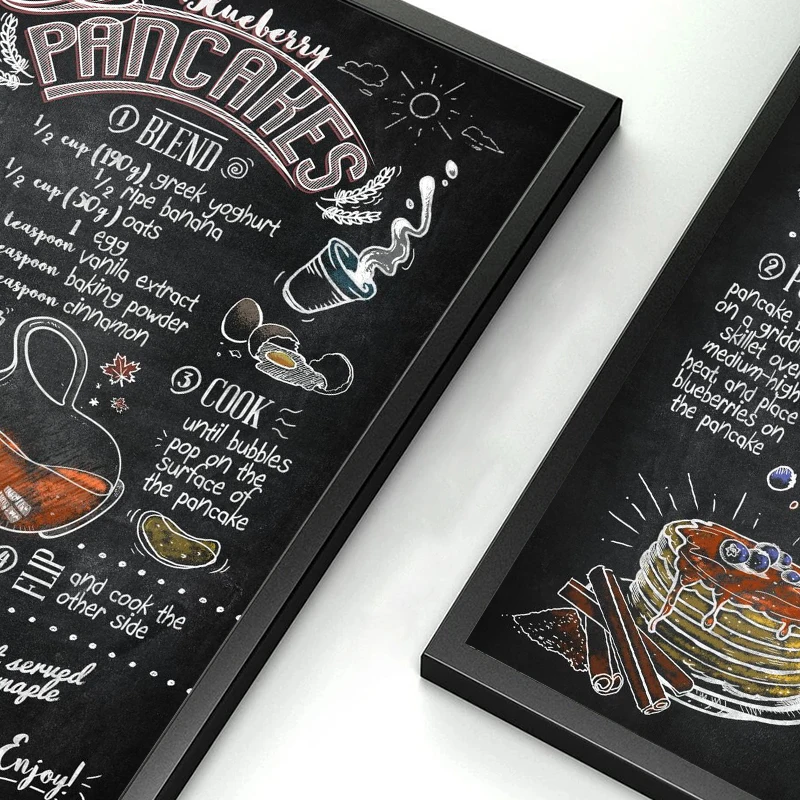 Blueberry
PANCAKES
1 BLEND
1/2 cup (190g) greek yoghurt
1/2 ripe banana
1/2 cup (50g) oats
1 egg
teaspoon vanila extract
teaspoon baking powder
teaspoon cinnamon
3 COOK
until bubbles
pop on the
surface of
the pancake
4 FLIP
and cook the
other side
served
maple
Enjoy!
2
pancake
on a
skillet over
medium-high
heat and place
blueberries on
the pancake